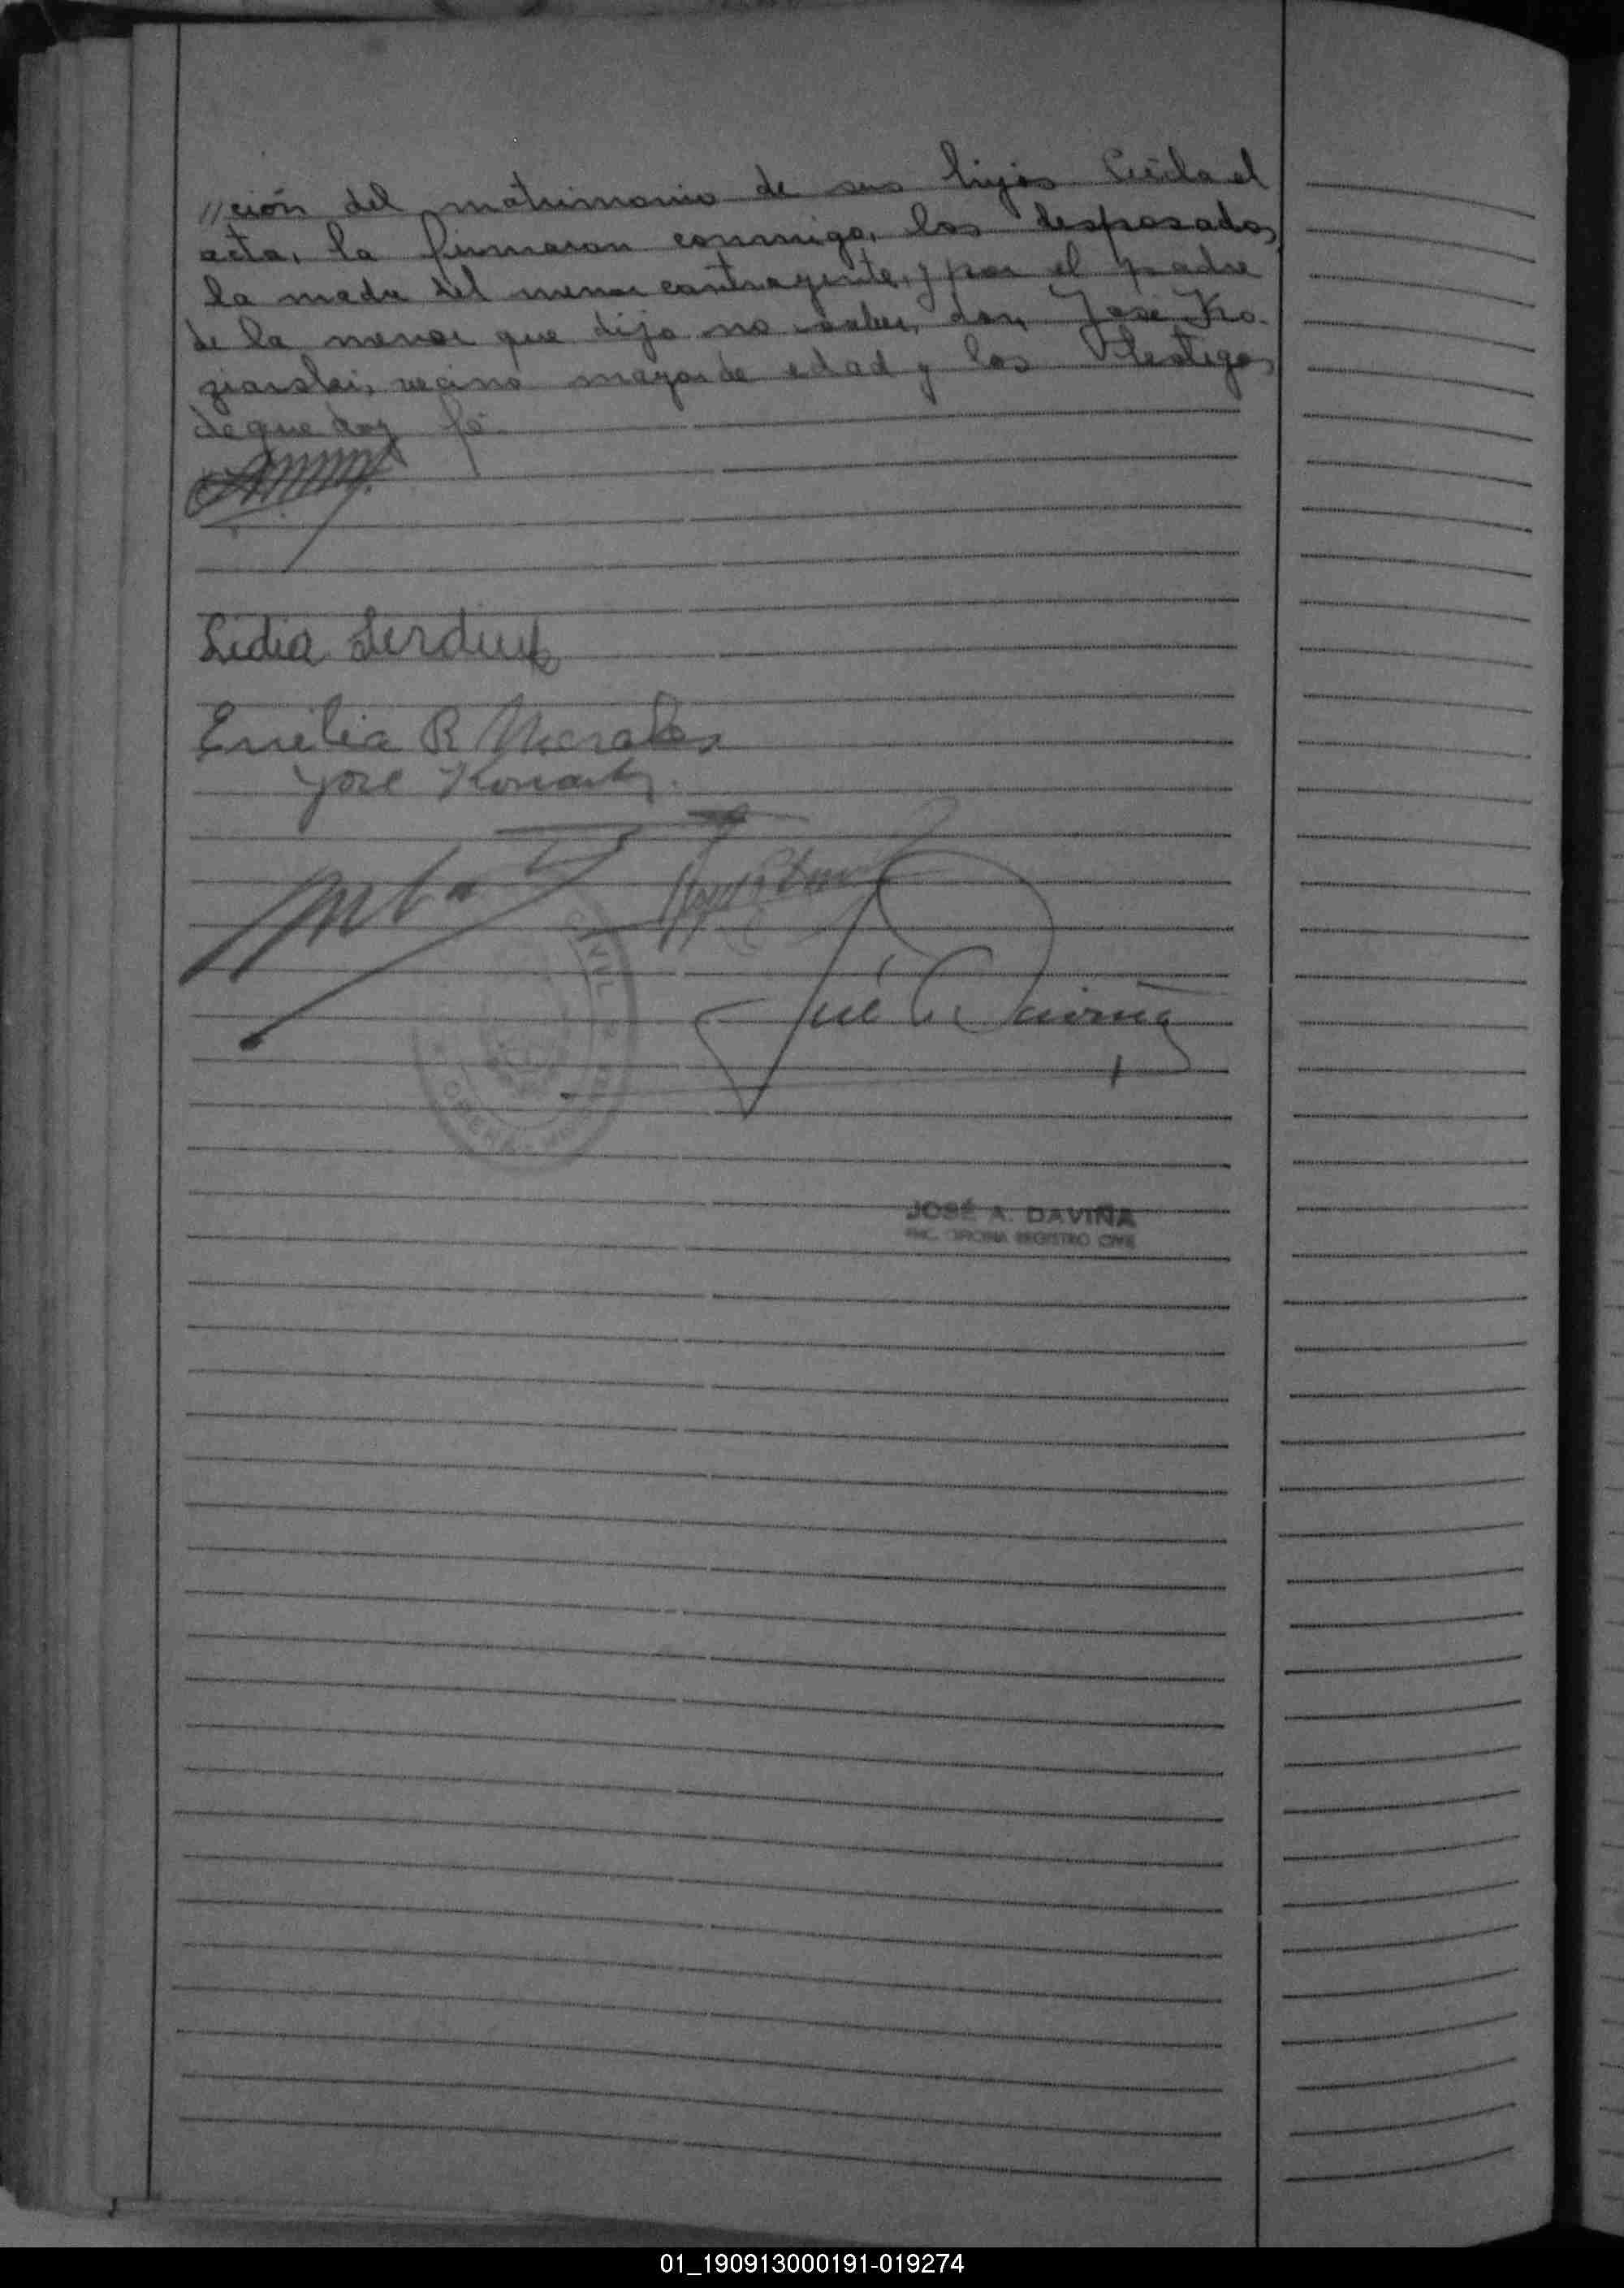 //ción del matrimonio de sus hijos Leída el
acta, la firmaron conmigo, los desposados,
la madre del menor contrayente, y por el padre
de la menor que dijo no saber, don José Ko-
ziarski, vecino mayor de edad y los testigos
de que doy fé.
Lidia Serdiuk
Emilia R Morales
José
José A. Daviña
CIVIL
OBERÁ
JOSÉ A. DAVIÑA
ENC. OFICINA REGISTRO CIVIL
01_190913000191-019274